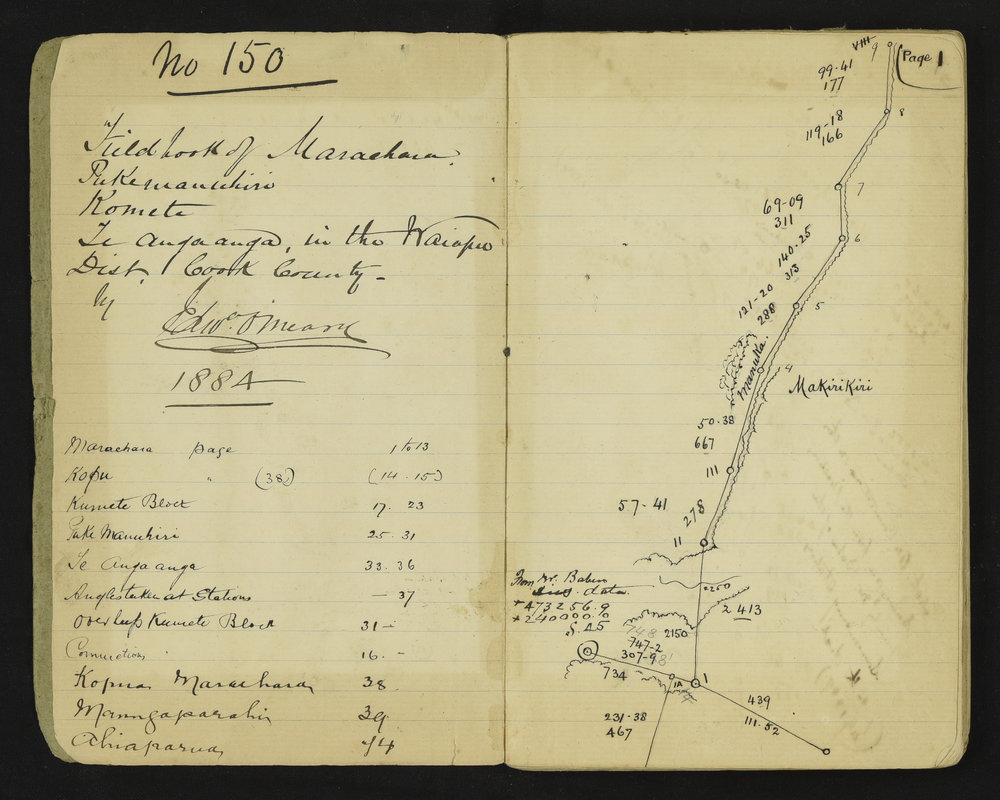 No 150
Fieldbook of Marachara.
Pukemanuhiri
Komete
Te anga anga, in the Waiapu
Dist, Cook County -
by
Edwd. O'Meara
1884
Marachara page 1 to 13
Kopu " (38) (14.15)
Kumete Block 17. 23
Puke Manuhiri 25. 31
Te Anga anga 33. 36
Angles taken at Stations - 37
Overleaf Kumete Block 31 -
Connections 16. -
Kopua Marachara 38.
Maungaparahi 39
Ahiaparua 44
Page 1
VIII
9
99-41
177
8
119-18
166
7
69-09
311
140-25
313
6
121-20
288
5
Manuka.
4
Makirikiri
50.38
667
III
57-41
278
II
From Mr. Baber
data.
+473256.9
+240000.0
S. 25
2260
2413
748 2150
747-2
307-98
734
1A
1
439
111.52
231.38
467